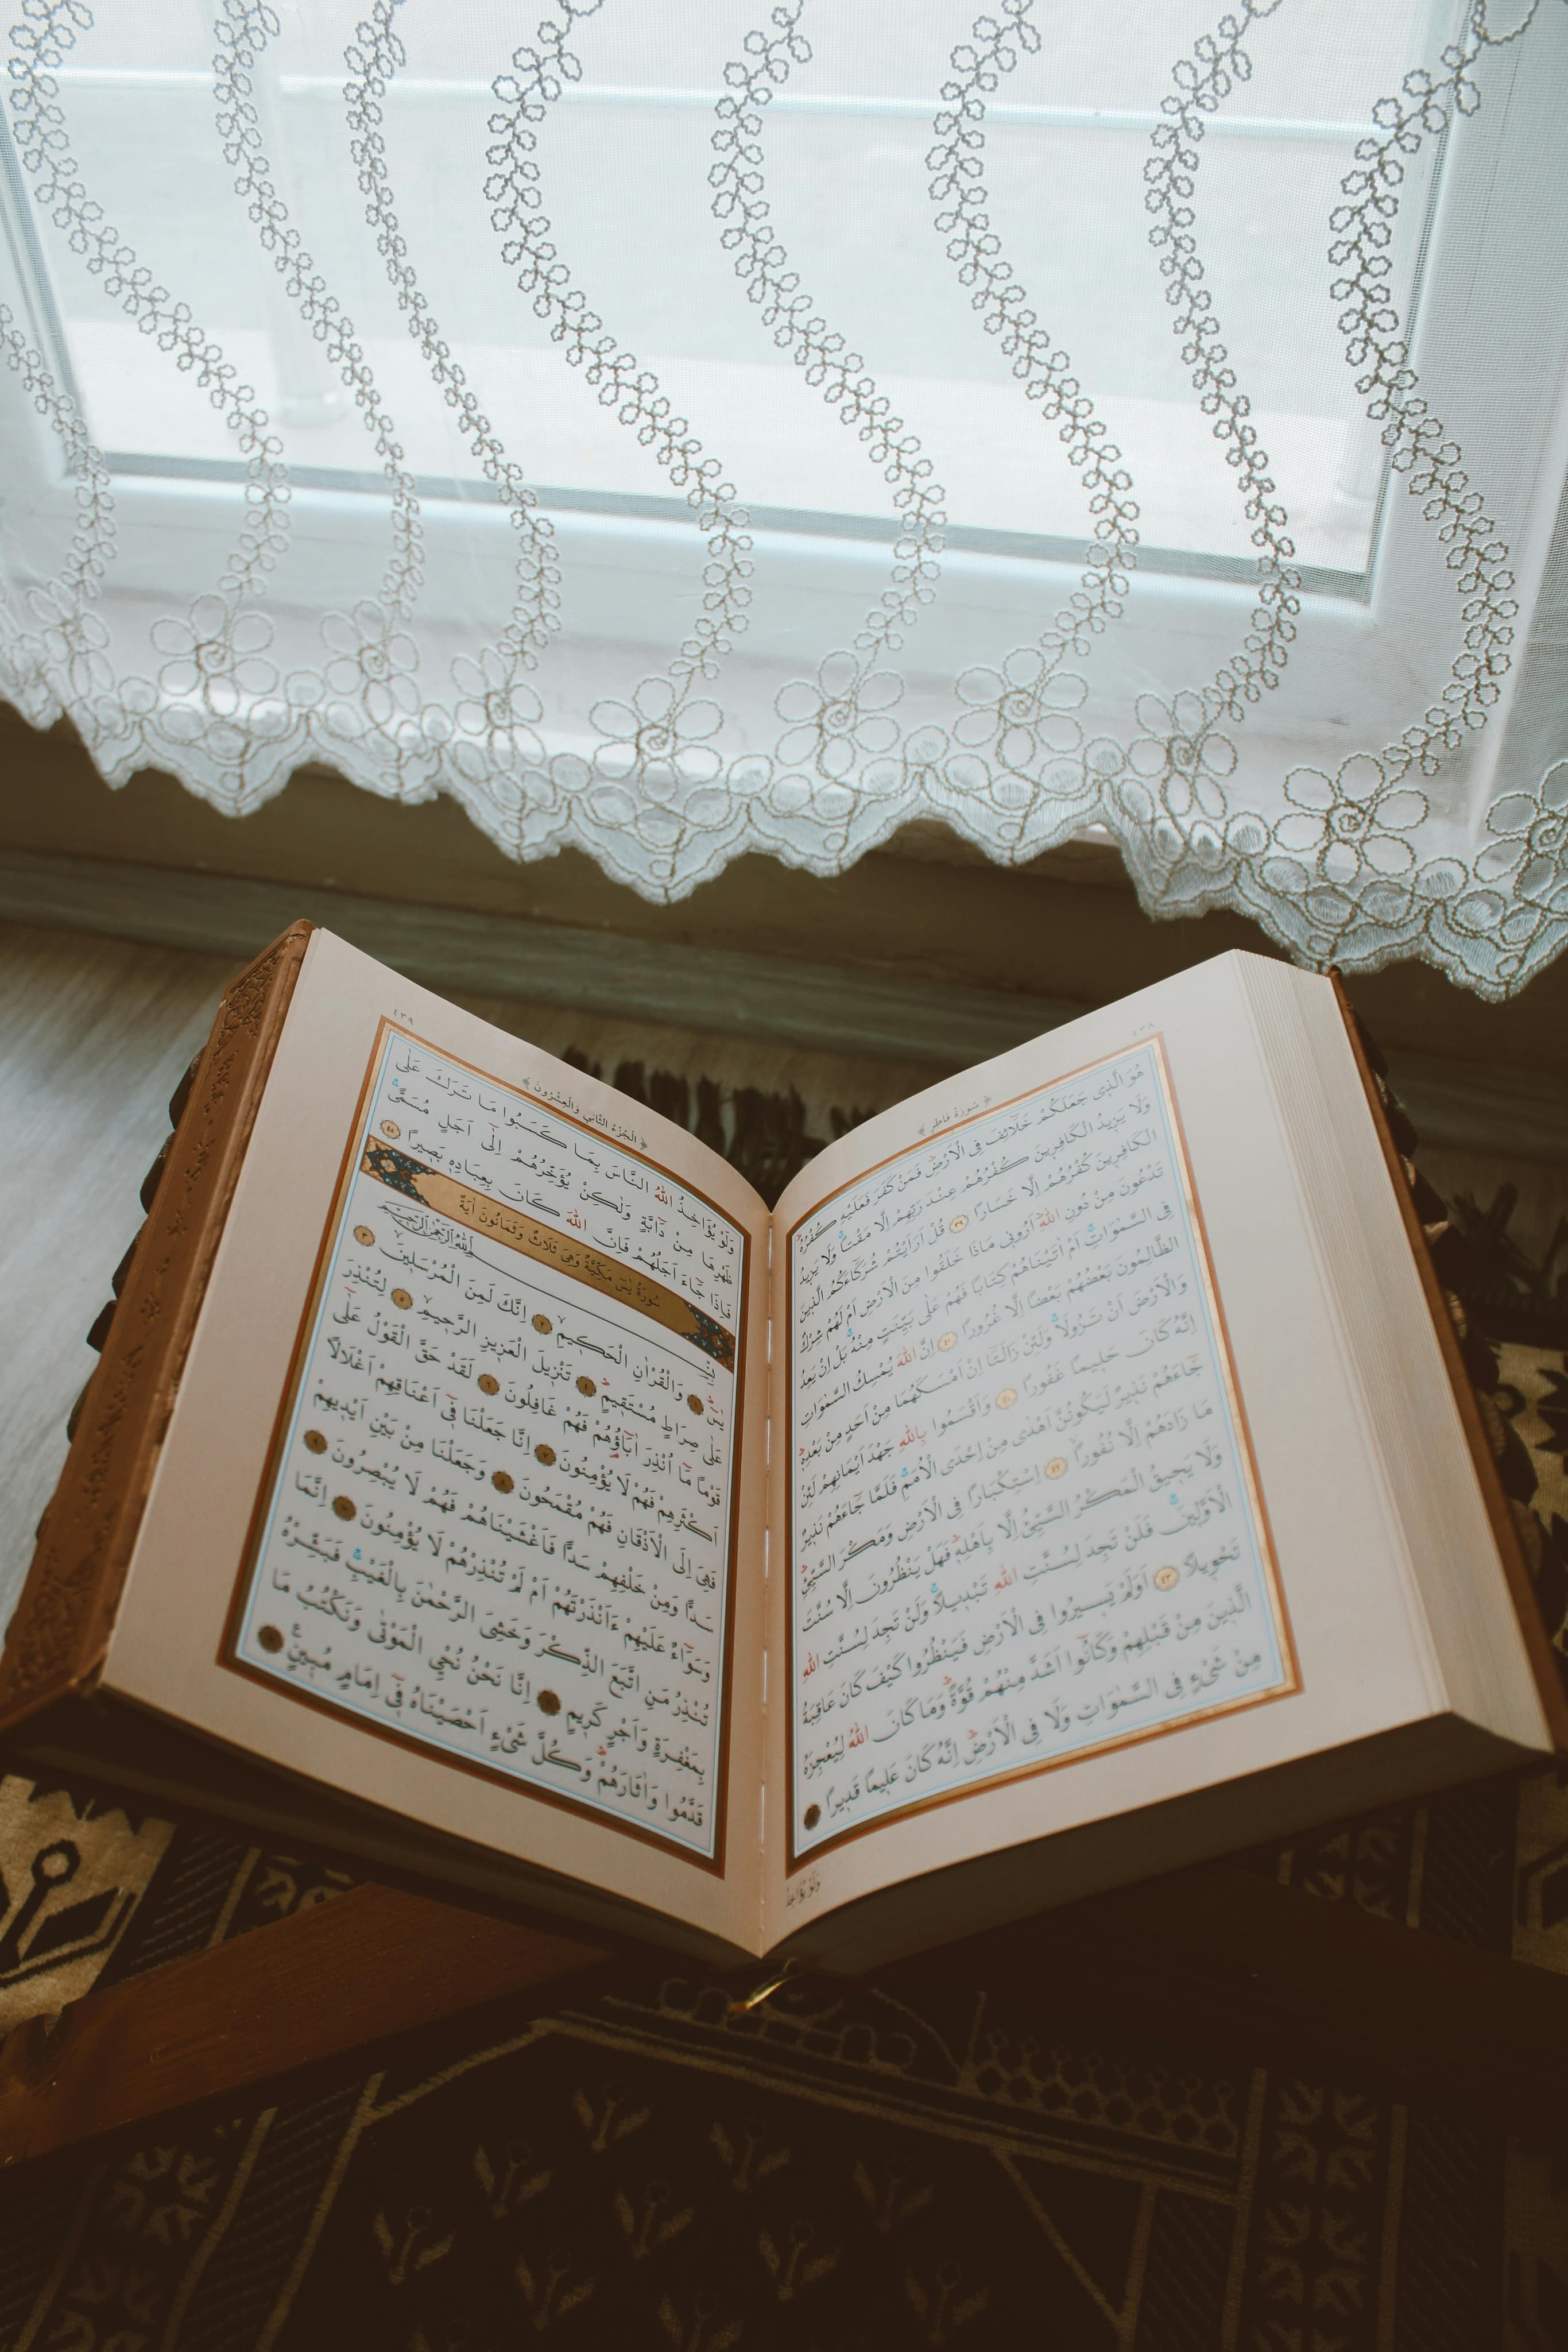 ٤٣٨
سُورَةُ فَاطِرٍ
هُوَ الَّذ۪ي جَعَلَكُمْ خَلَٓائِفَ فِي الْاَرْضِۜ فَمَنْ كَفَرَ فَعَلَيْهِ كُفْرُهُۜ
وَلَا يَز۪يدُ الْكَافِر۪ينَ كُفْرُهُمْ عِنْدَ رَبِّهِمْ اِلَّا مَقْتًاۚ وَلَا يَز۪يدُ
الْكَافِر۪ينَ كُفْرُهُمْ اِلَّا خَسَارًا ٣٩ قُلْ اَرَاَيْتُمْ شُرَكَٓاءَكُمُ الَّذ۪ينَ
تَدْعُونَ مِنْ دُونِ اللّٰهِۜ اَرُون۪ي مَاذَا خَلَقُوا مِنَ الْاَرْضِ اَمْ لَهُمْ شِرْكٌ
فِي السَّمٰوَاتِۚ اَمْ اٰتَيْنَاهُمْ كِتَابًا فَهُمْ عَلٰى بَيِّنَتٍ مِنْهُۚ بَلْ اِنْ يَعِدُ
الظَّالِمُونَ بَعْضُهُمْ بَعْضًا اِلَّا غُرُورًا ٤٠ اِنَّ اللّٰهَ يُمْسِكُ السَّمٰوَاتِ
وَالْاَرْضَ اَنْ تَزُولَاۚ وَلَئِنْ زَالَتَٓا اِنْ اَمْسَكَهُمَا مِنْ اَحَدٍ مِنْ بَعْدِه۪ۜ
اِنَّهُ كَانَ حَل۪يمًا غَفُورًا ٤١ وَاَقْسَمُوا بِاللّٰهِ جَهْدَ اَيْمَانِهِمْ لَئِنْ
جَٓاءَهُمْ نَذ۪يرٌ لَيَكُونُنَّ اَهْدٰى مِنْ اِحْدَى الْاُمَمِۚ فَلَمَّا جَٓاءَهُمْ نَذ۪يرٌ
مَا زَادَهُمْ اِلَّا نُفُورًاۙ ٤٢ اِسْتِكْبَارًا فِي الْاَرْضِ وَمَكْرَ السَّيِّئِۜ
وَلَا يَح۪يقُ الْمَكْرُ السَّيِّئُ اِلَّا بِاَهْلِه۪ۜ فَهَلْ يَنْظُرُونَ اِلَّا سُنَّتَ
الْاَوَّل۪ينَۚ فَلَنْ تَجِدَ لِسُنَّتِ اللّٰهِ تَبْد۪يلًاۚ وَلَنْ تَجِدَ لِسُنَّتِ اللّٰهِ
تَحْو۪يلًا ٤٣ اَوَلَمْ يَس۪يرُوا فِي الْاَرْضِ فَيَنْظُرُوا كَيْفَ كَانَ عَاقِبَةُ
الَّذ۪ينَ مِنْ قَبْلِهِمْ وَكَانُٓوا اَشَدَّ مِنْهُمْ قُوَّةًۜ وَمَا كَانَ اللّٰهُ لِيُعْجِزَهُ
مِنْ شَيْءٍ فِي السَّمٰوَاتِ وَلَا فِي الْاَرْضِۜ اِنَّهُ كَانَ عَل۪يمًا قَد۪يرًا
وَلَوْ يُؤَاخِذُ
٤٣٩
الْجُزْءُ الثَّانِي وَالْعِشْرُونَ
وَلَوْ يُؤَاخِذُ اللّٰهُ النَّاسَ بِمَا كَسَبُوا مَا تَرَكَ عَلٰى
ظَهْرِهَا مِنْ دَٓابَّةٍ وَلٰكِنْ يُؤَخِّرُهُمْ اِلٰٓى اَجَلٍ مُسَمًّىۚ
فَاِذَا جَٓاءَ اَجَلُهُمْ فَاِنَّ اللّٰهَ كَانَ بِعِبَادِه۪ بَص۪يرًا ٤٥
سُورَةُ يٰسٓ مَكِّيَّةٌ وَهِيَ ثَلَاثٌ وَثَمَانُونَ اٰيَةً
بِسْمِ اللّٰهِ الرَّحْمٰنِ الرَّح۪يمِ
يٰسٓۜ ١ وَالْقُرْاٰنِ الْحَك۪يمِۙ ٢ اِنَّكَ لَمِنَ الْمُرْسَل۪ينَۙ ٣
عَلٰى صِرَاطٍ مُسْتَق۪يمٍۜ ٤ تَنْز۪يلَ الْعَز۪يزِ الرَّح۪يمِۙ ٥ لِتُنْذِرَ
قَوْمًا مَٓا اُنْذِرَ اٰبَٓاؤُهُمْ فَهُمْ غَافِلُونَ ٦ لَقَدْ حَقَّ الْقَوْلُ عَلٰٓى
اَكْثَرِهِمْ فَهُمْ لَا يُؤْمِنُونَ ٧ اِنَّا جَعَلْنَا ف۪ٓي اَعْنَاقِهِمْ اَغْلَالًا
فَهِيَ اِلَى الْاَذْقَانِ فَهُمْ مُقْمَحُونَ ٨ وَجَعَلْنَا مِنْ بَيْنِ اَيْد۪يهِمْ
سَدًّا وَمِنْ خَلْفِهِمْ سَدًّا فَاَغْشَيْنَاهُمْ فَهُمْ لَا يُبْصِرُونَ ٩
وَسَوَٓاءٌ عَلَيْهِمْ ءَاَنْذَرْتَهُمْ اَمْ لَمْ تُنْذِرْهُمْ لَا يُؤْمِنُونَ ١٠ اِنَّمَا
تُنْذِرُ مَنِ اتَّبَعَ الذِّكْرَ وَخَشِيَ الرَّحْمٰنَ بِالْغَيْبِۚ فَبَشِّرْهُ
بِمَغْفِرَةٍ وَاَجْرٍ كَر۪يمٍ ١١ اِنَّا نَحْنُ نُحْيِ الْمَوْتٰى وَنَكْتُبُ مَا
قَدَّمُوا وَاٰثَارَهُمْۜ وَكُلَّ شَيْءٍ اَحْصَيْنَاهُ ف۪ٓي اِمَامٍ مُب۪ينٍ